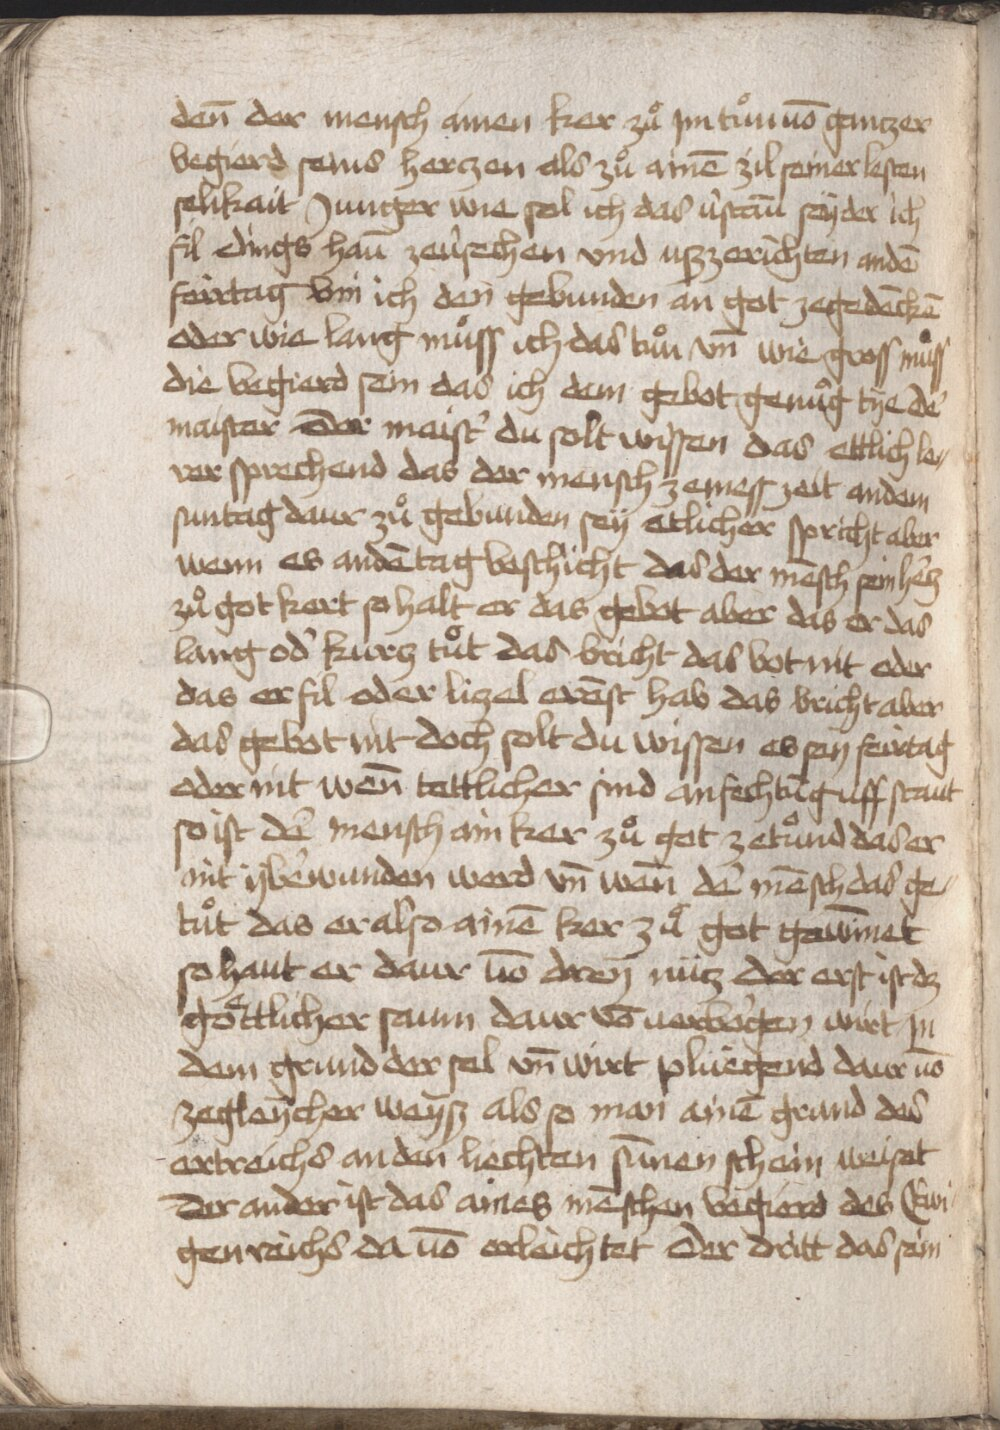 den̄ der mensch ainen ker zuͦ im tuͦn uō gantzer
begierd seins herczen als zuͦ ainē zil seiner lesten
selikait Junger wie sol ich das v̓stān seyder ich
fil dings han̄ zeu̓sechen vnd uszzerichten andē
feirtag bin ich den gebunden an got zegedēckē
oder wie lang muͦss ich das tuͦn vn̄ wie gross muͦss
die begierd sein das ich dem gebot genuͦg tye de̓
maister Der maist̓ du solt wissen das ettlich le⸗
rer sprechend das der mensch zemess zeit andem
suntag daur zuͦ gebunden sey etlicher spricht aber
wenn es andē tag beschicht das der mēsch sein hercz
zuͦ got kert so halt er das gebot aber das er das
lang od̓ kurcz tuͦt das bricht das bot nit oder
das er fil oder lizel erēst hab das bricht aber
das gebot nit doch solt du wissen es sey feirtag
oder nit wen̄ tettlicher sind anfechtūg uff staut
so ist de̓ mensch ain ker zuͦ got zetuͦnd das er
nit ybe̓wunden werd vn̄ wen̄ de̓ mēsch das ge⸗
tuͦt das er also ainē ker zuͦ got gewinnet
so haut er daur uō drey nücz der erst ist dz
göttlicher saum daur vō uerborgen wirt in
dem grund der sel vn̄ wirt pluegend daur uō
zegleycher weysz als so man ainē grund des
ertreichs an den liechten sūnen schein weiset
Der ander ist das aines mēschen begierd des Ewi
gen reichs da uō erleichtet Der dritt das sein